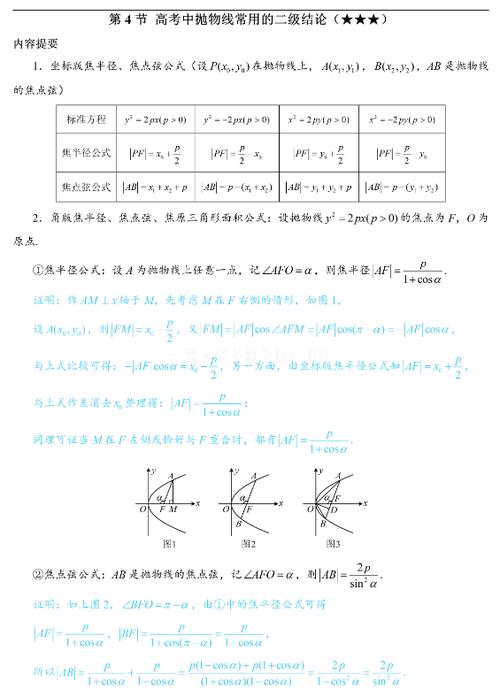 第 4 节 高考中抛物线常用的二级结论（★★★）
内容提要
1．坐标版焦半径、焦点弦公式（设 P(x₀, y₀) 在抛物线上，A(x₁, y₁)，B(x₂, y₂)，AB 是抛物线
的焦点弦）
标准方程 y² = 2px(p > 0) y² = −2px(p > 0) x² = 2py(p > 0) x² = −2py(p > 0)
焦半径公式 |PF| = x₀ + p/2 |PF| = p/2 − x₀ |PF| = y₀ + p/2 |PF| = p/2 − y₀
焦点弦公式 |AB| = x₁ + x₂ + p |AB| = p − (x₁ + x₂) |AB| = y₁ + y₂ + p |AB| = p − (y₁ + y₂)
2．角版焦半径、焦点弦、焦原三角形面积公式：设抛物线 y² = 2px(p > 0) 的焦点为 F，O 为
原点.
①焦半径公式：设 A 为抛物线上任意一点，记∠AFO = α，则焦半径 |AF| = p/(1 + cos α) .
证明：作 AM ⊥ x 轴于 M，先考虑 M 在 F 右侧的情形，如图 1，
设 A(x₀, y₀)，则 |FM| = x₀ − p/2，又 |FM| = |AF| cos∠AFM = |AF| cos(π − α) = −|AF| cos α，
与上式比较可得：−|AF| cos α = x₀ − p/2，另一方面，由坐标版焦半径公式知 |AF| = x₀ + p/2，
与上式作差消去 x₀ 整理得：|AF| = p/(1 + cos α)；
同理可证当 M 在 F 左侧或恰好与 F 重合时，都有 |AF| = p/(1 + cos α) .
y A α O F M x
y A α O F B x
y A α O F D B x
图1 图2 图3
②焦点弦公式：AB 是抛物线的焦点弦，记∠AFO = α，则 |AB| = 2p/sin² α .
证明：如上图 2，∠BFO = π − α，由①中的焦半径公式可得
|AF| = p/(1 + cos α)，|BF| = p/(1 + cos(π − α)) = p/(1 − cos α)，
所以 |AB| = p/(1 + cos α) + p/(1 − cos α) = (p(1 − cos α) + p(1 + cos α))/((1 + cos α)(1 − cos α)) = 2p/(1 − cos² α) = 2p/sin² α .